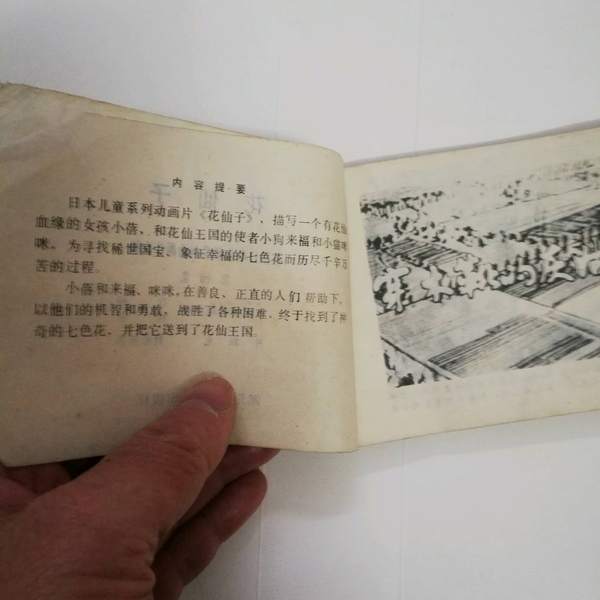 内容提要
日本儿童系列动画片《花仙子》，描写一个有花仙
血缘的女孩小蓓，和花仙王国的使者小狗来福和小猫咪
咪，为寻找稀世国宝、象征幸福的七色花而历尽千辛万
苦的过程。
小蓓和来福、咪咪，在善良、正直的人们帮助下，
以他们的机智和勇敢，战胜了各种困难，终于找到了神
奇的七色花，并把它送到了花仙王国。